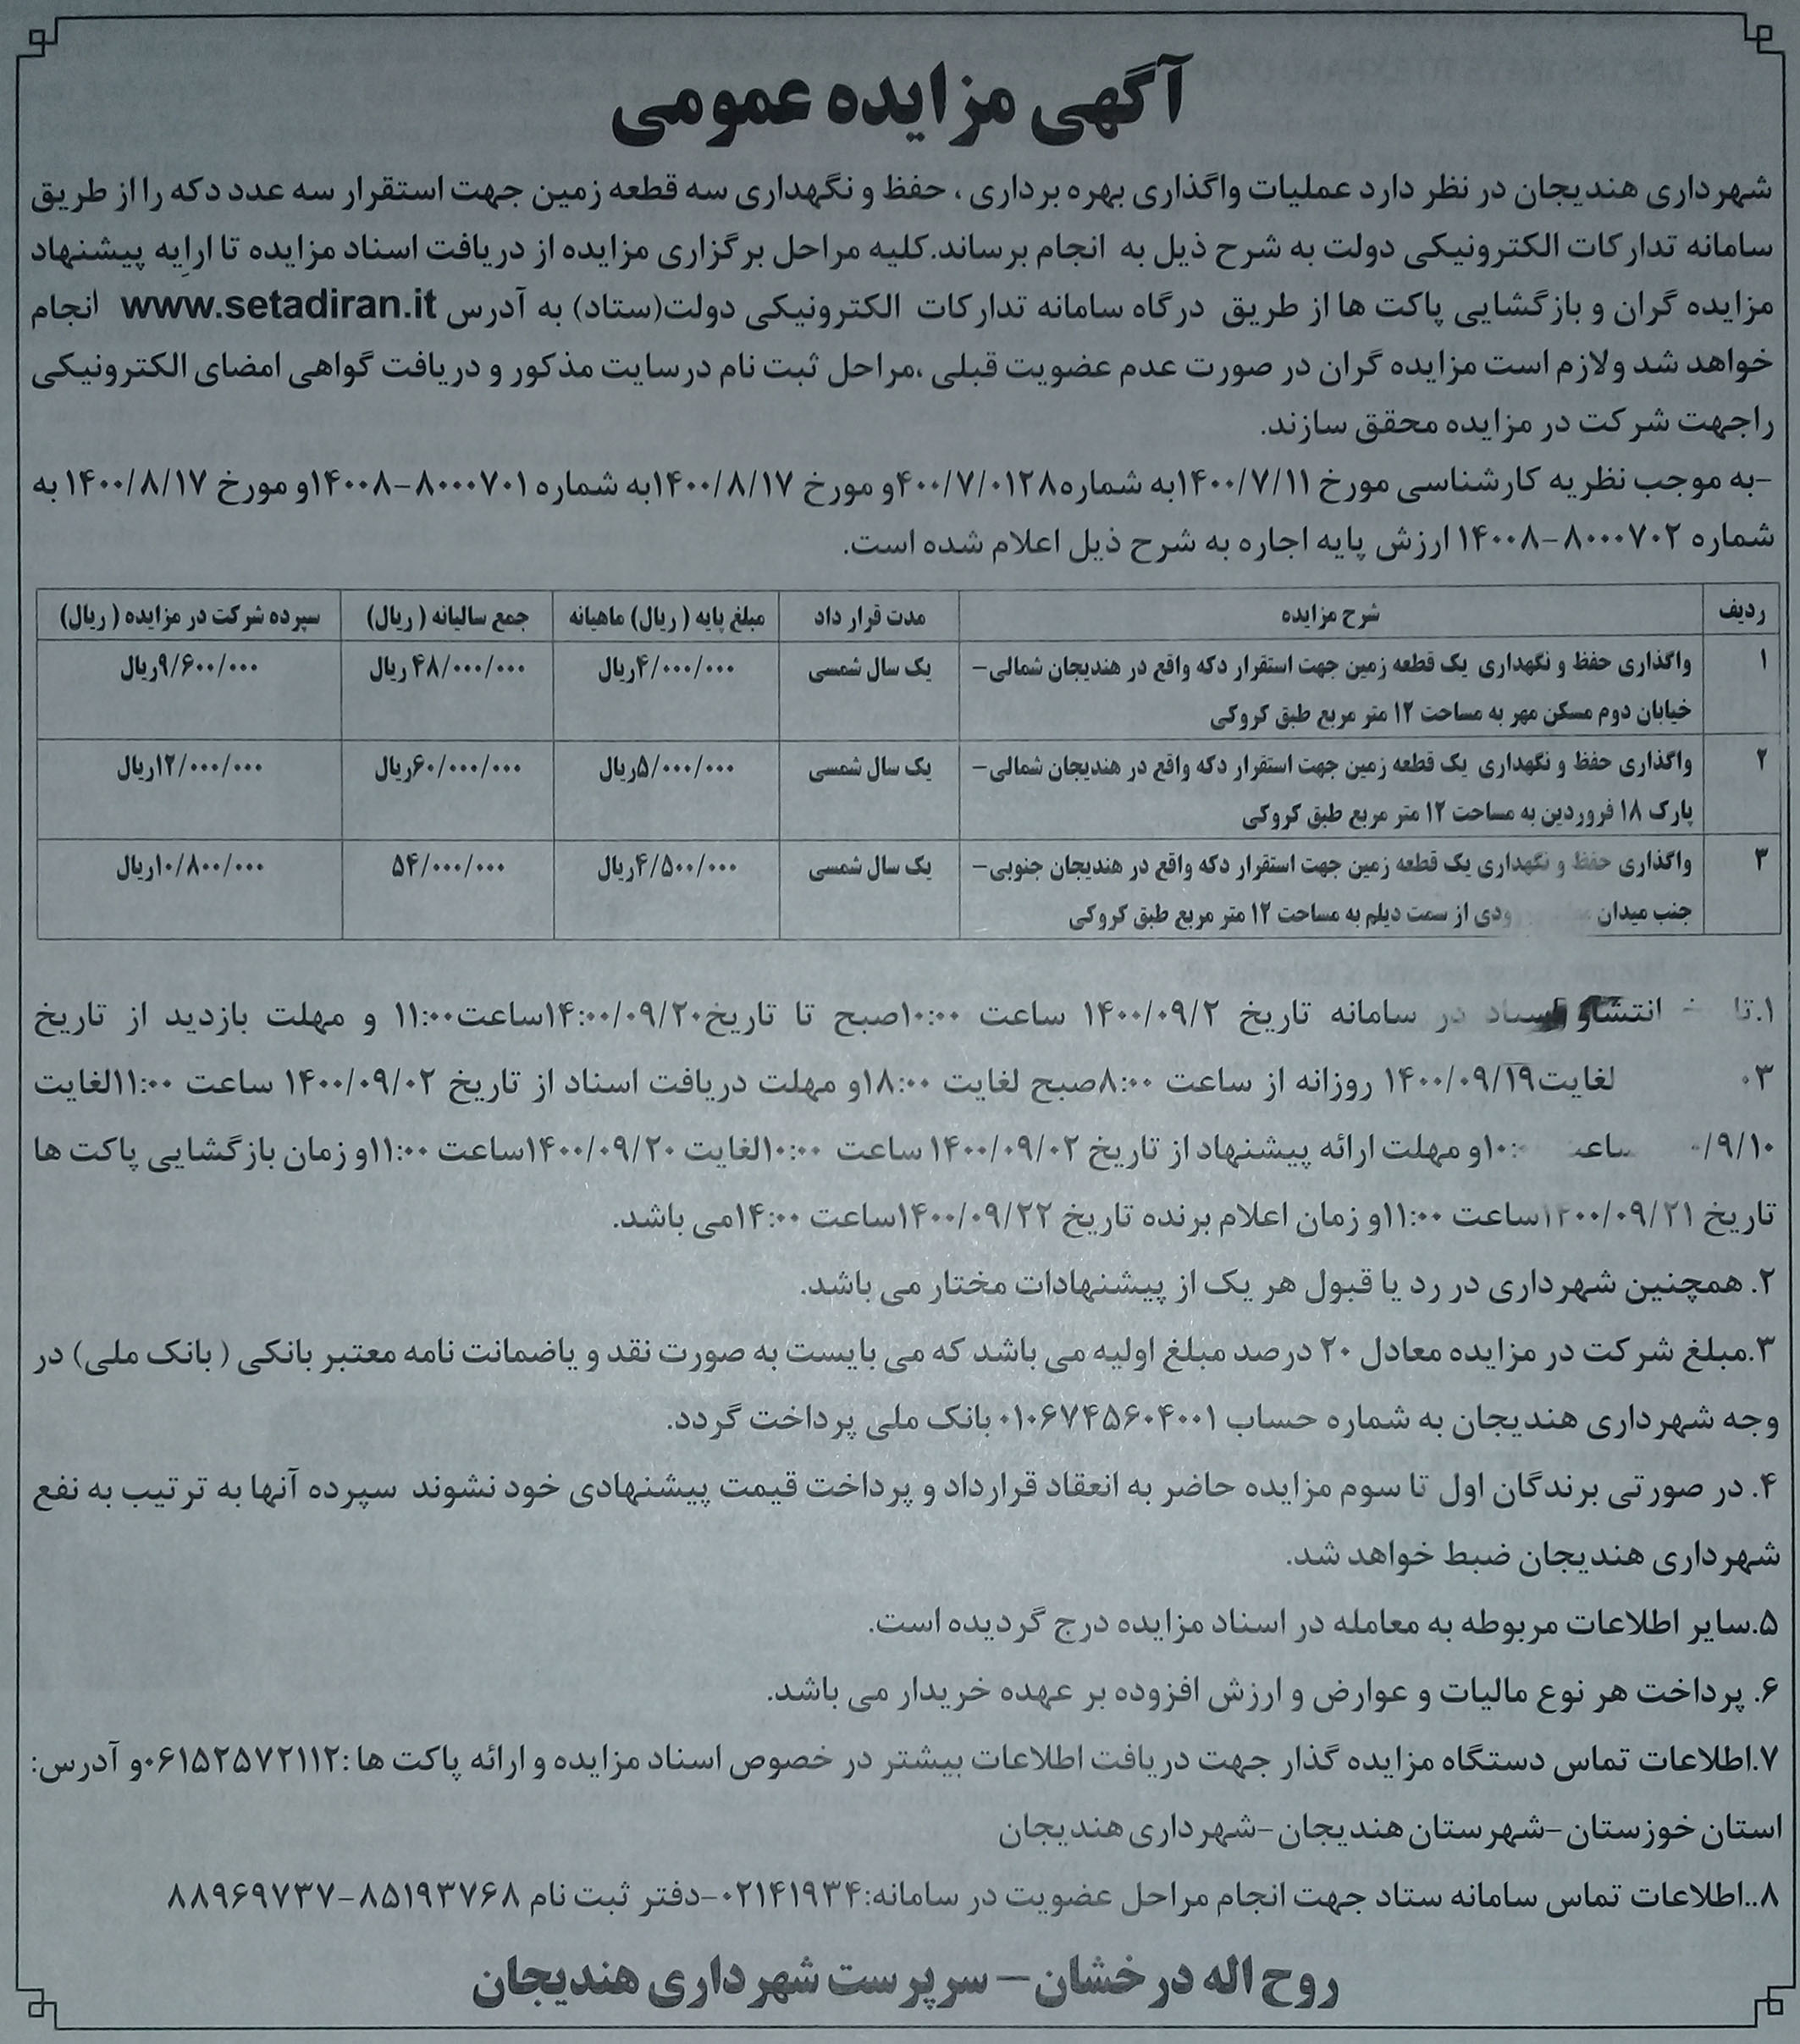 آگهی مزایده عمومی
شهرداری هندیجان در نظر دارد عملیات واگذاری بهره برداری ، حفظ و نگهداری سه قطعه زمین جهت استقرار سه عدد دکه را از طریق
سامانه تدارکات الکترونیکی دولت به شرح ذیل به انجام برساند.کلیه مراحل برگزاری مزایده از دریافت اسناد مزایده تا ارایه پیشنهاد
مزایده گران و بازگشایی پاکت ها از طریق درگاه سامانه تدارکات الکترونیکی دولت(ستاد) به آدرس www.setadiran.it انجام
خواهد شد ولازم است مزایده گران در صورت عدم عضویت قبلی ،مراحل ثبت نام درسایت مذکور و دریافت گواهی امضای الکترونیکی
راجهت شرکت در مزایده محقق سازند.
-به موجب نظریه کارشناسی مورخ ۱۴۰۰/۷/۱۱به شماره۴۰۰/۷/۰۱۲۸و مورخ ۱۴۰۰/۸/۱۷به شماره ۸۰۰۰۷۰۱-۱۴۰۰۸و مورخ ۱۴۰۰/۸/۱۷ به
شماره ۸۰۰۰۷۰۲-۱۴۰۰۸ ارزش پایه اجاره به شرح ذیل اعلام شده است.
ردیف شرح مزایده مدت قرار داد مبلغ پایه ( ریال) ماهیانه جمع سالیانه ( ریال) سپرده شرکت در مزایده ( ریال)
۱ واگذاری حفظ و نگهداری یک قطعه زمین جهت استقرار دکه واقع در هندیجان شمالی- یک سال شمسی ۴/۰۰۰/۰۰۰ریال ۴۸/۰۰۰/۰۰۰ ریال ۹/۶۰۰/۰۰۰ریال
خیابان دوم مسکن مهر به مساحت ۱۲ متر مربع طبق کروکی
۲ واگذاری حفظ و نگهداری یک قطعه زمین جهت استقرار دکه واقع در هندیجان شمالی- یک سال شمسی ۵/۰۰۰/۰۰۰ریال ۶۰/۰۰۰/۰۰۰ریال ۱۲/۰۰۰/۰۰۰ریال
پارک ۱۸ فروردین به مساحت ۱۲ متر مربع طبق کروکی
۳ واگذاری حفظ و نگهداری یک قطعه زمین جهت استقرار دکه واقع در هندیجان جنوبی- یک سال شمسی ۴/۵۰۰/۰۰۰ریال ۵۴/۰۰۰/۰۰۰ ۱۰/۸۰۰/۰۰۰ریال
جنب میدان از سمت دیلم به مساحت ۱۲ متر مربع طبق کروکی
۱. انتشار اسناد در سامانه تاریخ ۱۴۰۰/۰۹/۲ ساعت ۱۰:۰۰صبح تا تاریخ۱۴:۰۰/۰۹/۲۰ساعت۱۱:۰۰ و مهلت بازدید از تاریخ
لغایت۱۴۰۰/۰۹/۱۹ روزانه از ساعت ۸:۰۰صبح لغایت ۱۸:۰۰و مهلت دریافت اسناد از تاریخ ۱۴۰۰/۰۹/۰۲ ساعت ۱۱:۰۰لغایت
و مهلت ارائه پیشنهاد از تاریخ ۱۴۰۰/۰۹/۰۲ ساعت ۱۰:۰۰لغایت ۱۴۰۰/۰۹/۲۰ساعت ۱۱:۰۰و زمان بازگشایی پاکت ها
تاریخ ۱۴۰۰/۰۹/۲۱ساعت ۱۱:۰۰و زمان اعلام برنده تاریخ ۱۴۰۰/۰۹/۲۲ساعت ۱۴:۰۰می باشد.
۲. همچنین شهرداری در رد یا قبول هر یک از پیشنهادات مختار می باشد.
۳.مبلغ شرکت در مزایده معادل ۲۰ درصد مبلغ اولیه می باشد که می بایست به صورت نقد و یاضمانت نامه معتبر بانکی ( بانک ملی) در
وجه شهرداری هندیجان به شماره حساب ۰۱۰۶۷۴۵۶۰۴۰۰۱ بانک ملی پرداخت گردد.
۴. در صورتی برندگان اول تا سوم مزایده حاضر به انعقاد قرارداد و پرداخت قیمت پیشنهادی خود نشوند سپرده آنها به ترتیب به نفع
شهرداری هندیجان ضبط خواهد شد.
۵.سایر اطلاعات مربوطه به معامله در اسناد مزایده درج گردیده است.
۶. پرداخت هر نوع مالیات و عوارض و ارزش افزوده بر عهده خریدار می باشد.
۷.اطلاعات تماس دستگاه مزایده گذار جهت دریافت اطلاعات بیشتر در خصوص اسناد مزایده و ارائه پاکت ها :۰۶۱۵۲۵۷۲۱۱۲و آدرس:
استان خوزستان -شهرستان هندیجان -شهرداری هندیجان
۸..اطلاعات تماس سامانه ستاد جهت انجام مراحل عضویت در سامانه:۰۲۱۴۱۹۳۴-دفتر ثبت نام ۸۵۱۹۳۷۶۸-۸۸۹۶۹۷۳۷
روح اله درخشان – سرپرست شهرداری هندیجان